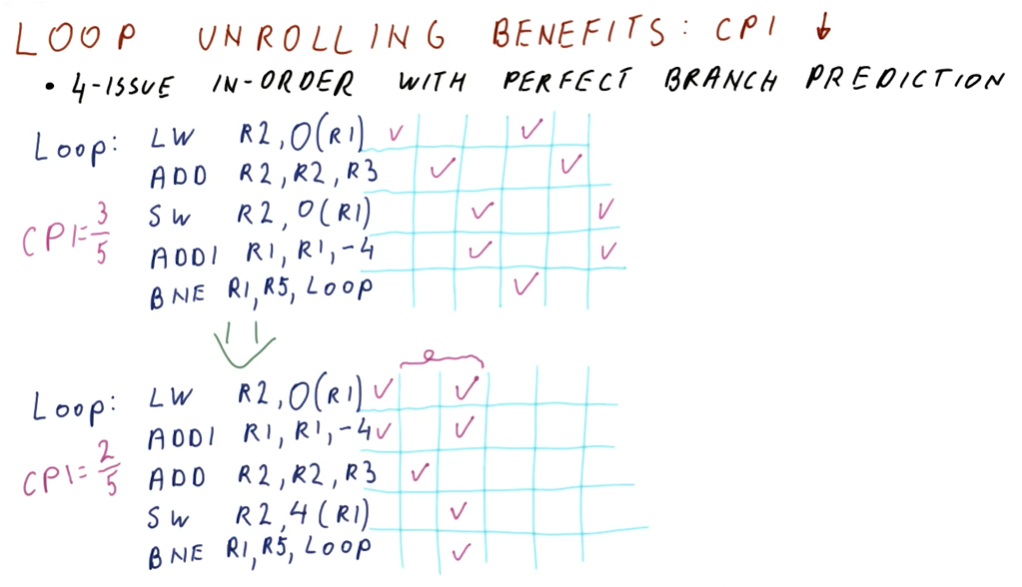 LOOP UNROLLING BENEFITS: CPI ↓
• 4-ISSUE IN-ORDER WITH PERFECT BRANCH PREDICTION
Loop: LW R2, 0(R1) ✓ ✓
ADD R2, R2, R3 ✓ ✓
SW R2, 0(R1) ✓ ✓
CPI = 3/5
ADDI R1, R1, -4 ✓ ✓
BNE R1, R5, LOOP ✓
Loop: LW R2, 0(R1) ✓ ✓
ADDI R1, R1, -4 ✓ ✓
CPI = 2/5
ADD R2, R2, R3 ✓
SW R2, 4(R1) ✓
BNE R1, R5, LOOP ✓